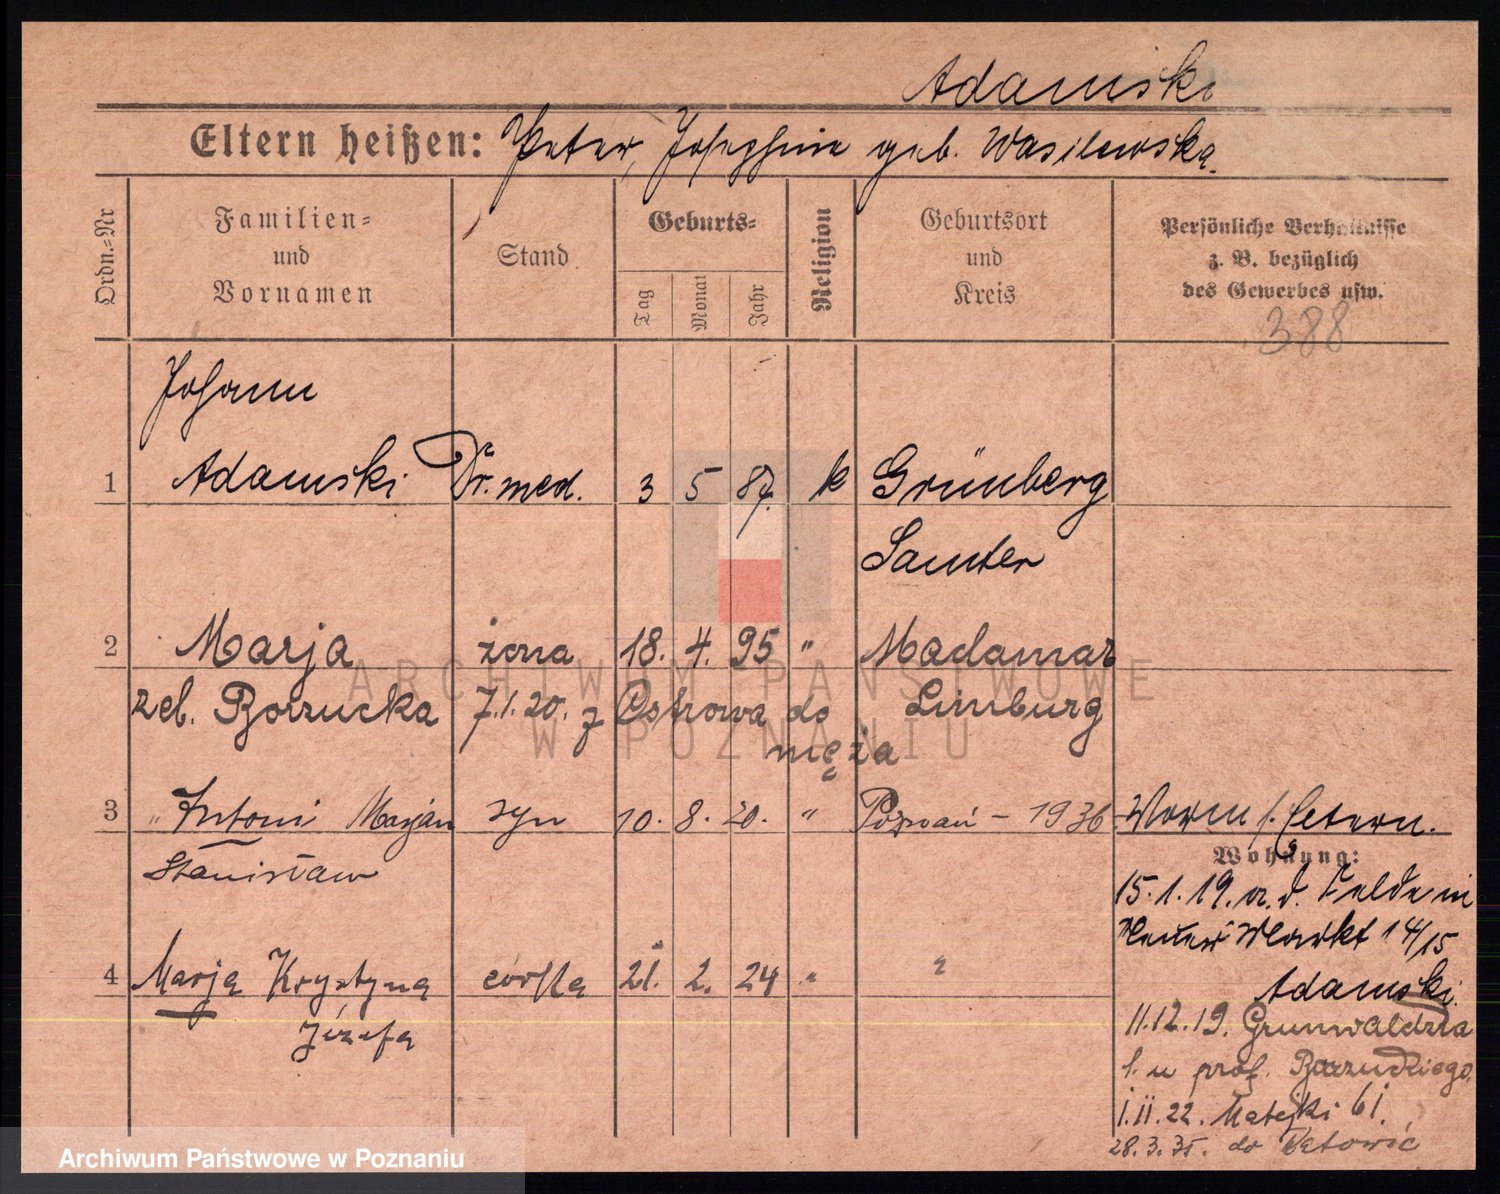 Adamski
Eltern heißen: Peter, Josephine geb. Wasilewska.
Ordn.=Nr
Familien=
und
Vornamen
Stand
Geburts=
Tag
Monat
Jahr
Religion
Geburtsort
und
Kreis
Persönliche Verhältnisse
z. B. bezüglich
des Gewerbes usw.
388
Johann
1 Adamski Dr. med. 3 5 87. k Grünberg
Samter
2 Marja żona 18. 4. 95 " Hadamar
zel. Borzucka 7.1.20. z Ostrowa do Limburg
męża
3 " Antoni Marjan syn 10. 8. 20. " Poznań - 1936
Stanisław
Wohnung:
15.1.19. a. d. Felde in
Markt 14/15
4 Marja Krystyna córka 21. 2. 24 " "
Józefa
Adamski.
11.12.19. Grunwaldzka
u prof. Borzuckiego
1.11.22. Matejki 61.
28.3.35. do
ARCHIWUM PAŃSTWOWE
W POZNANIU
Archiwum Państwowe w Poznaniu